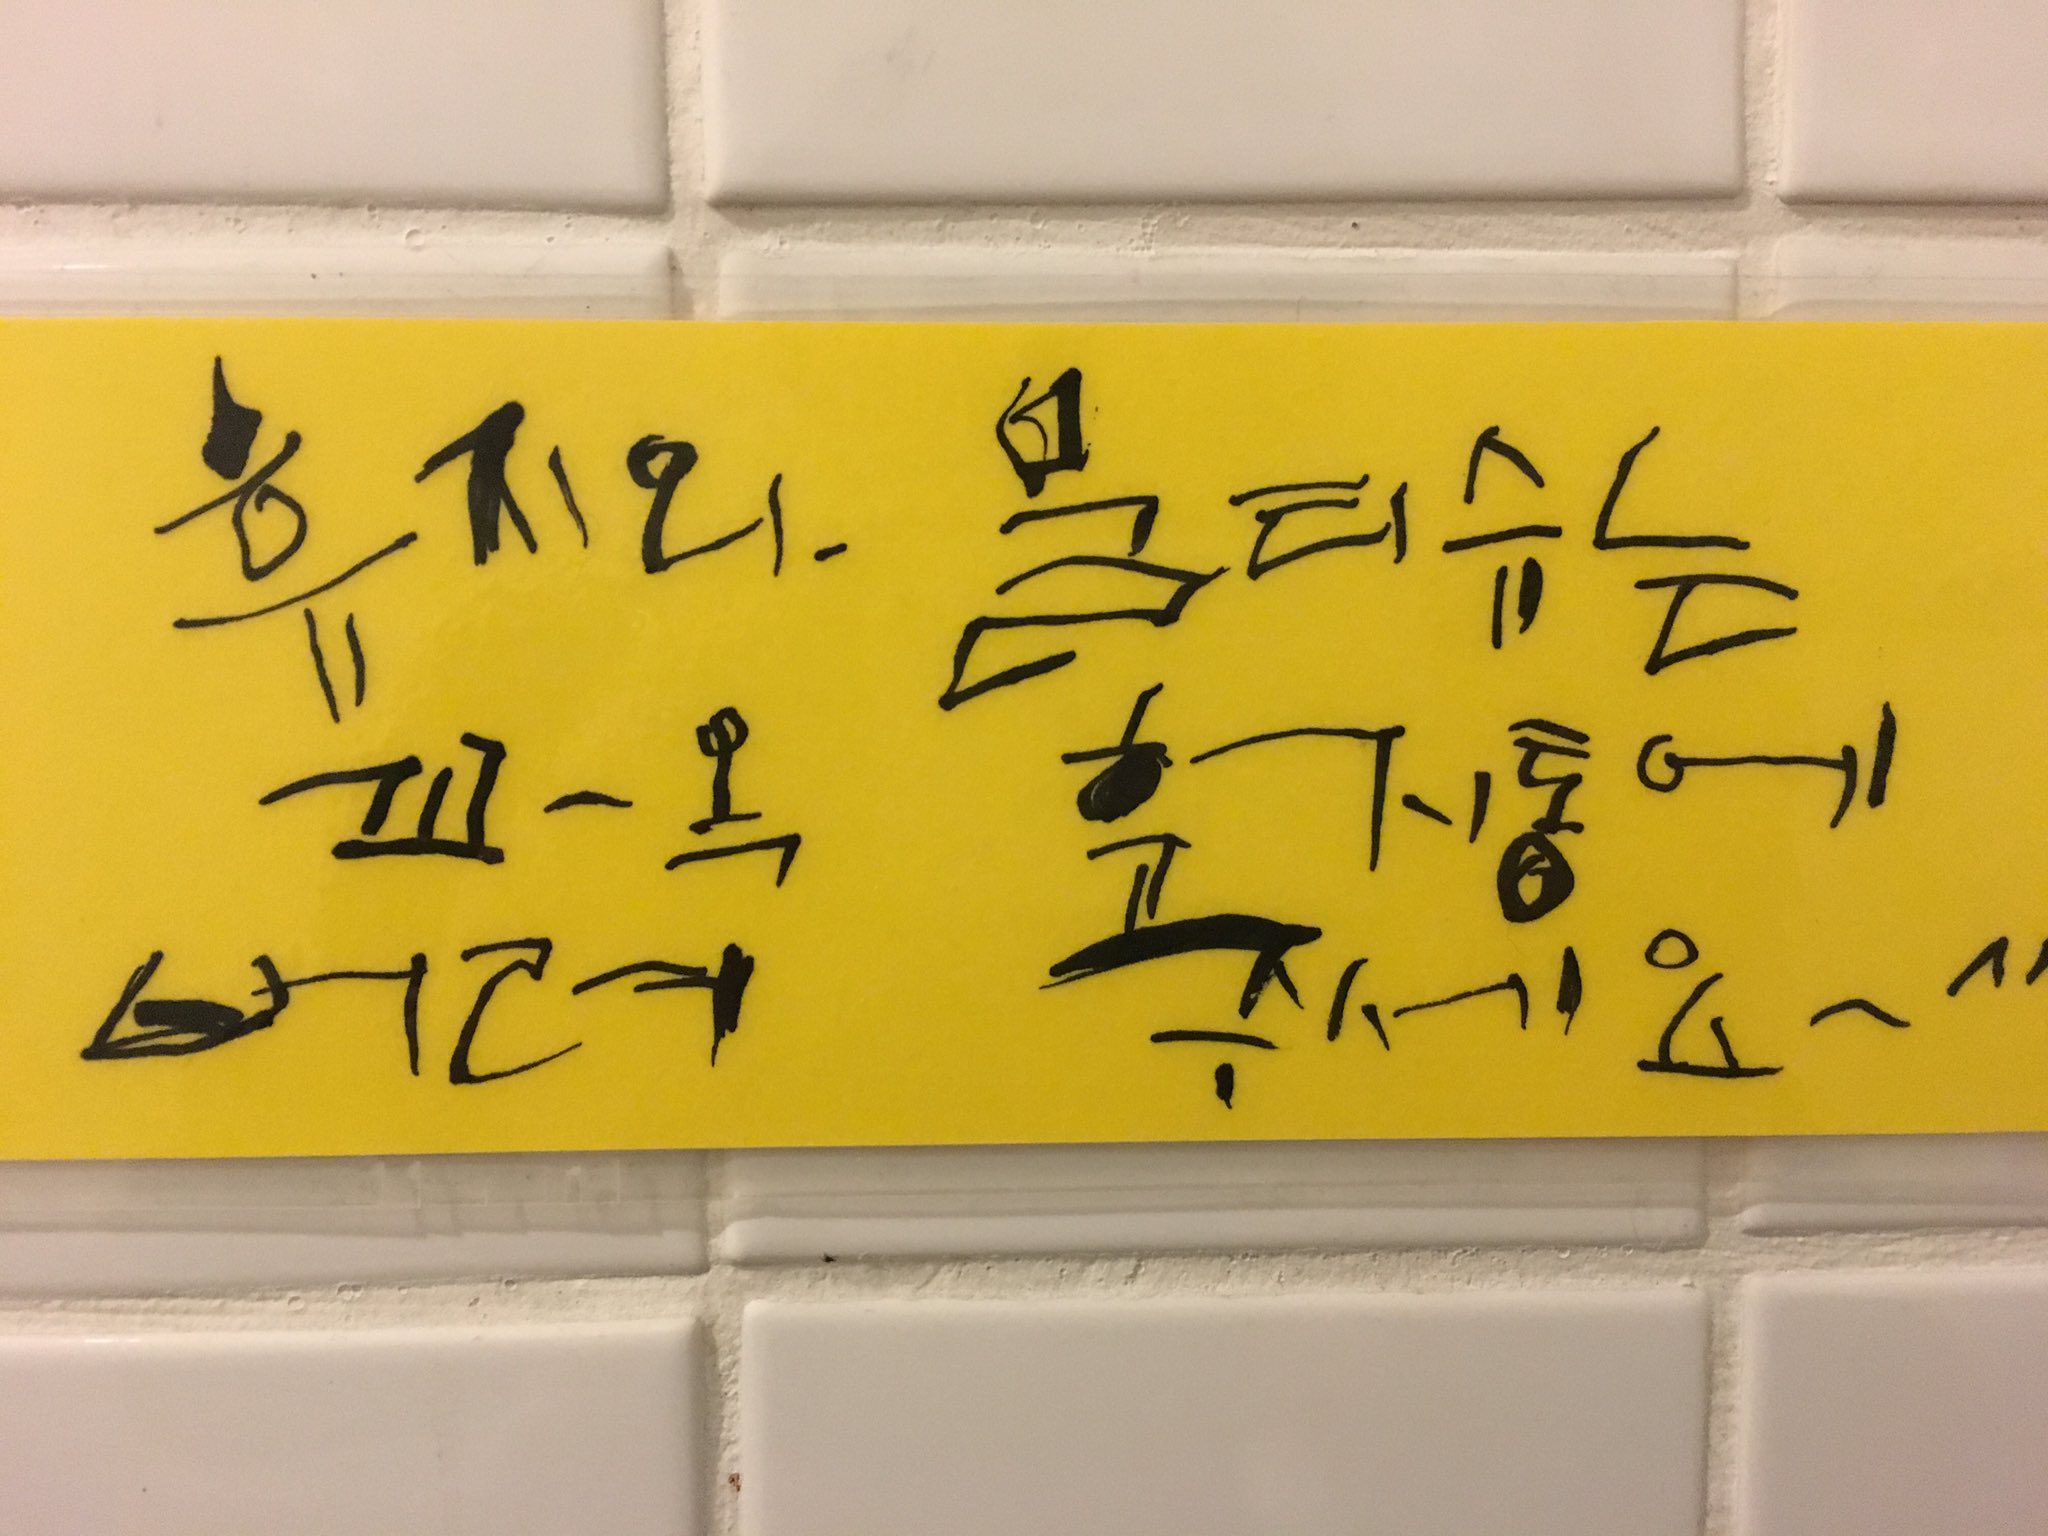 휴지와. 물티슈는
꼬~옥 휴지통에
버려 주세요~^^